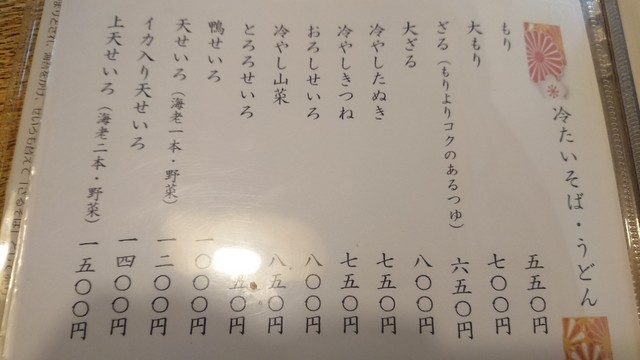 冷たいそば・うどん
もり 五五〇円
大もり 七〇〇円
ざる（もりよりコクのあるつゆ） 六五〇円
大ざる 八〇〇円
冷やしたぬき 七五〇円
冷やしきつね 七五〇円
おろしせいろ 八〇〇円
冷やし山菜 八五〇円
とろろせいろ 五〇円
鴨せいろ 一〇〇〇円
天せいろ（海老一本・野菜） 一二〇〇円
イカ入り天せいろ 一四〇〇円
上天せいろ（海老二本・野菜） 一五〇〇円